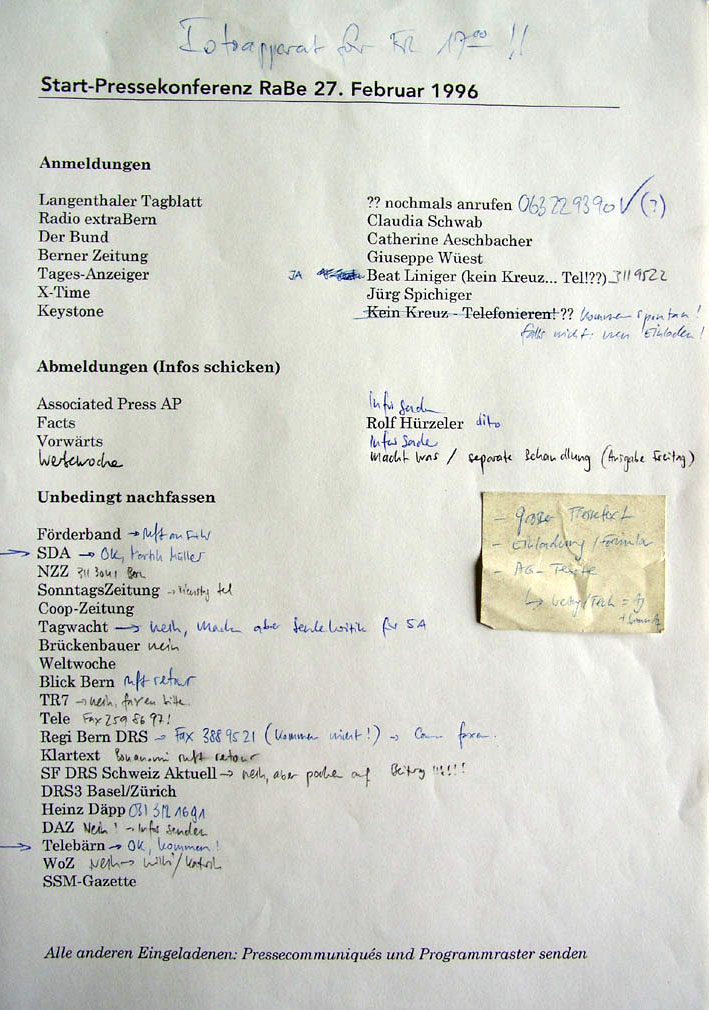 Fotoapparat für FR 17.00 !!
Start-Pressekonferenz RaBe 27. Februar 1996
Anmeldungen
Langenthaler Tagblatt ?? nochmals anrufen 063 22 93 90 ✓ (?)
Radio extraBern Claudia Schwab
Der Bund Catherine Aeschbacher
Berner Zeitung Giuseppe Wüest
Tages-Anzeiger JA Beat Liniger (kein Kreuz... Tel!??) 311 95 22
X-Time Jürg Spichiger
Keystone Kein Kreuz - Telefonieren! ?? kommen spontan!
falls nicht: neu Einladen!
Abmeldungen (Infos schicken)
Associated Press AP Infos senden
Facts Rolf Hürzeler dito
Vorwärts Infos senden
macht was / separate Behandlung (Ausgabe Freitag)
Unbedingt nachfassen
Förderband → ruft an
→ SDA → OK, Müller
NZZ 311 30 41
SonntagsZeitung → tel
Coop-Zeitung
Tagwacht → nein, machen aber für SA
Brückenbauer nein
Weltwoche
Blick Bern ruft retour
TR7 → nein, faxen bitte
Tele Fax 259 86 97!
Regi Bern DRS → Fax 388 95 21 (kommen nicht!) → faxen.
Klartext ruft retour
SF DRS Schweiz Aktuell → nein, aber auf Beitrag !!!!!!
DRS3 Basel/Zürich
Heinz Däpp 031 312 16 91
DAZ Nein! → Infos senden
→ Telebärn → OK, kommen!
WoZ Nein →
SSM-Gazette
- Pressetext
- Einladung / Formular
- AG-Texte
Alle anderen Eingeladenen: Pressecommuniqués und Programmraster senden